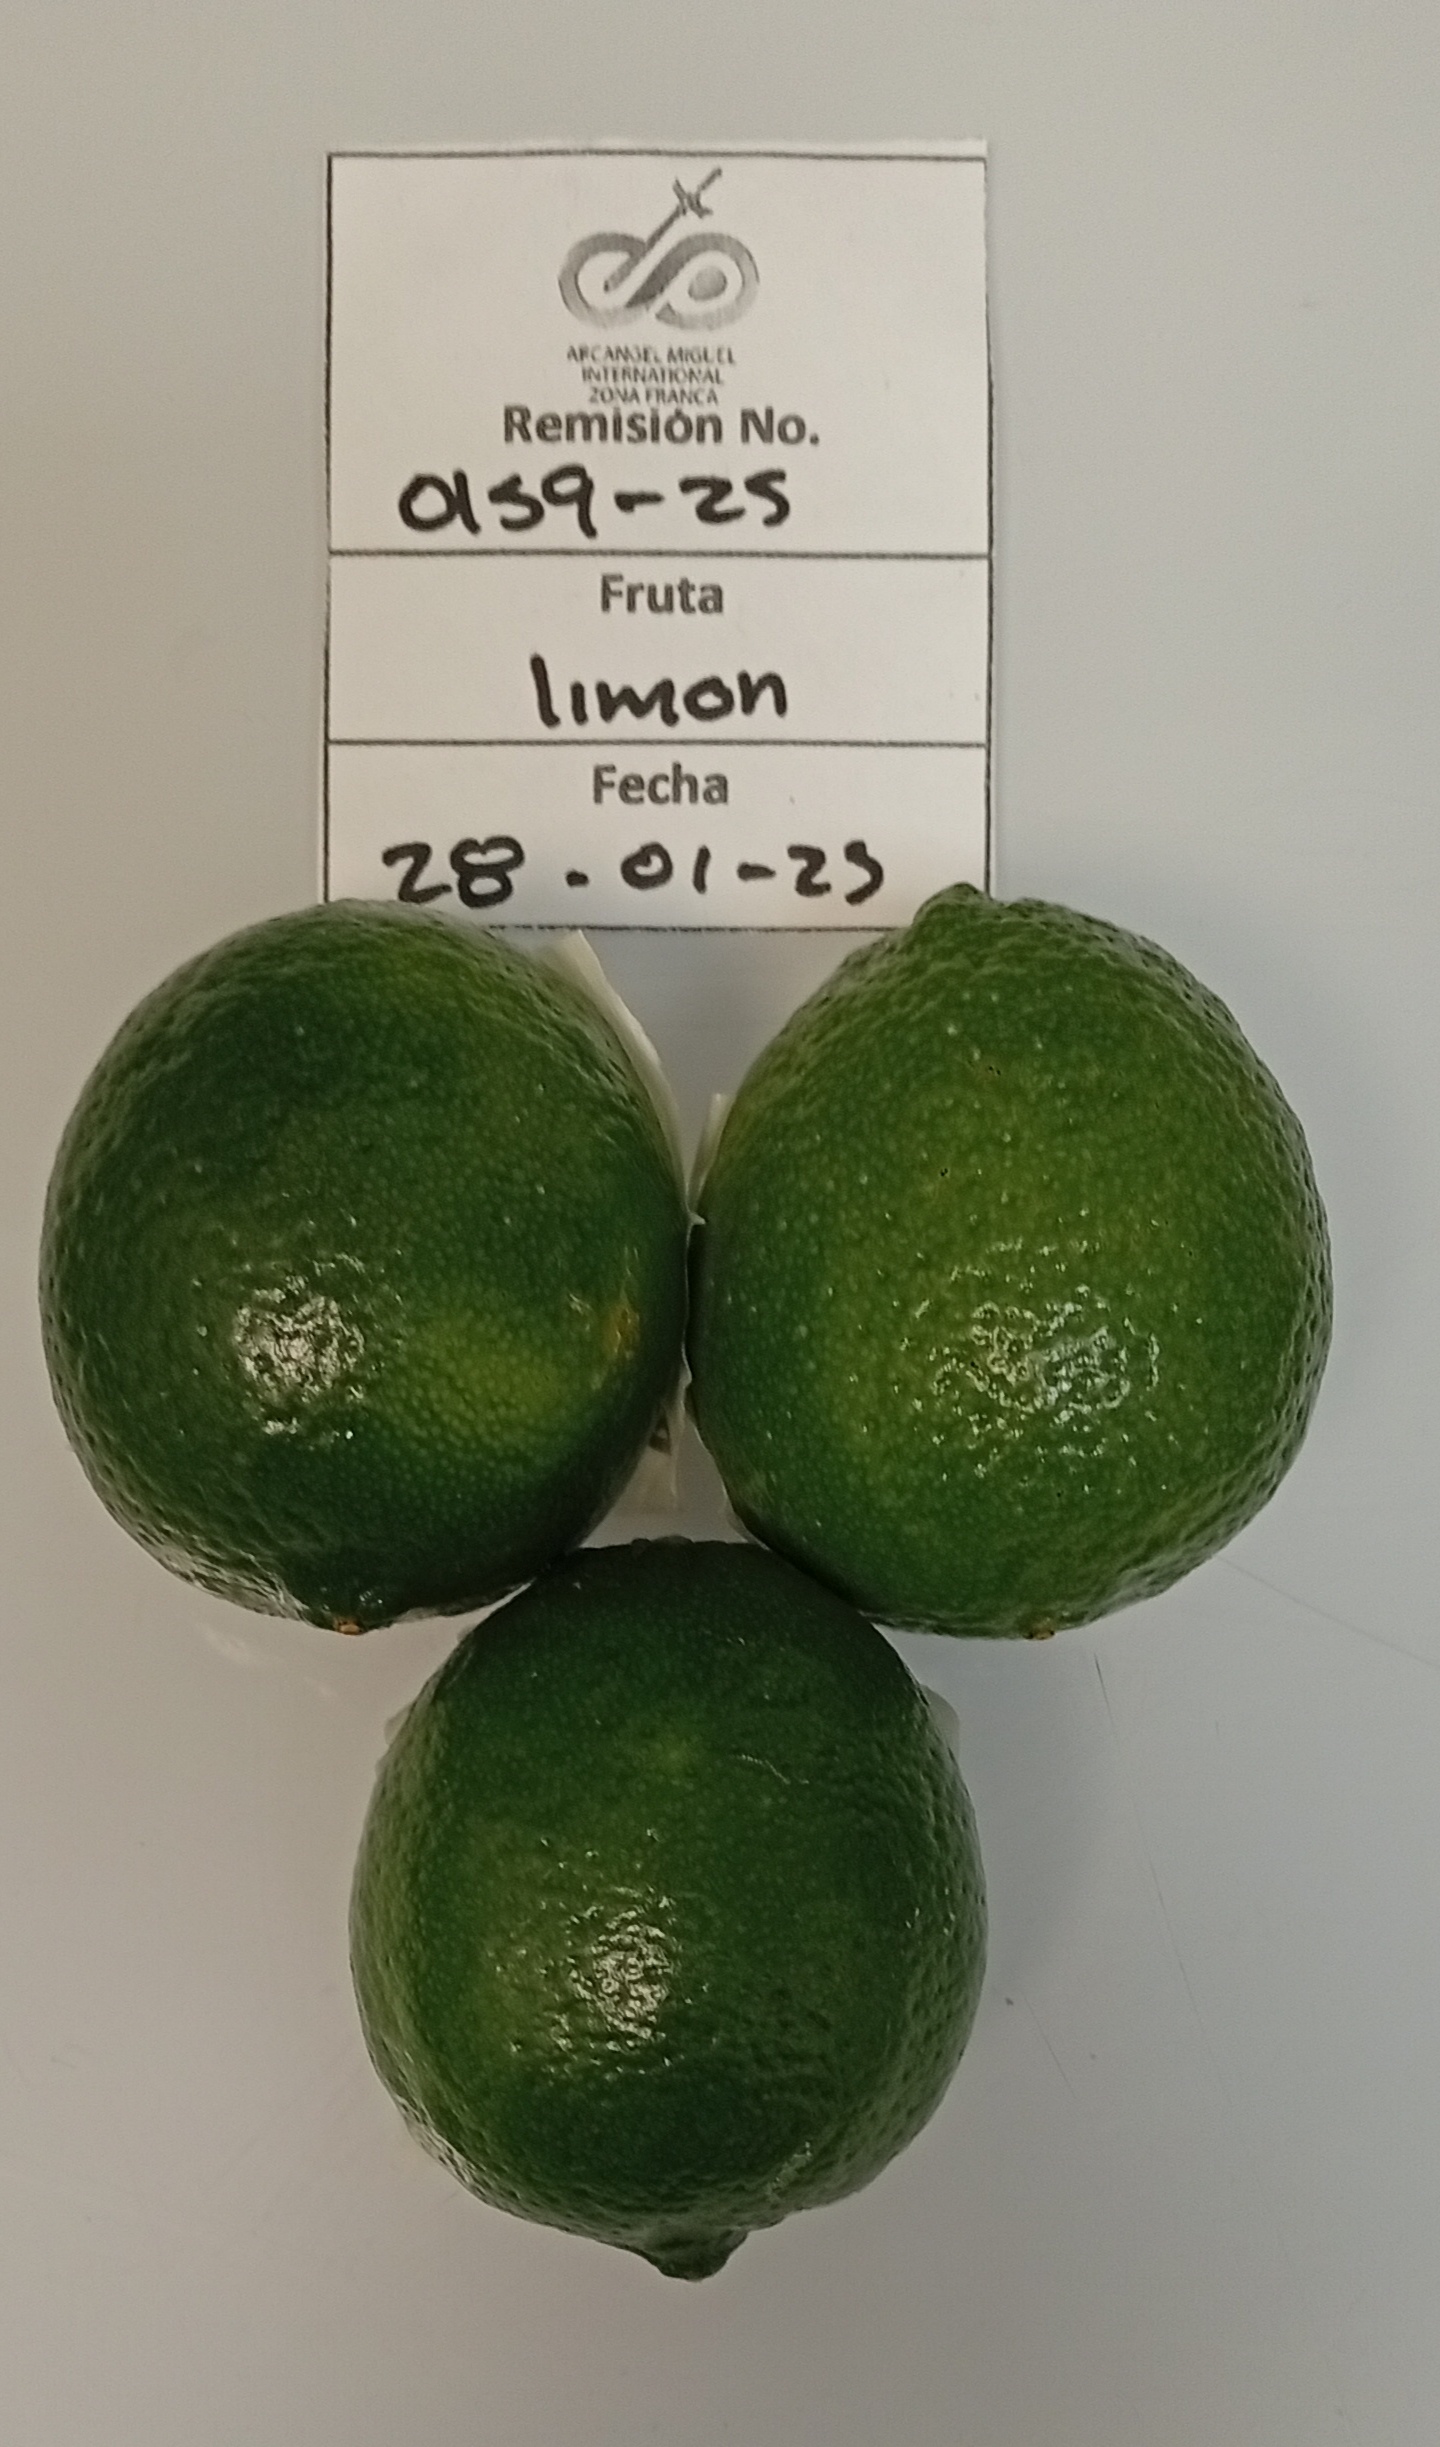 ARCANGEL MIGUEL
INTERNATIONAL
ZONA FRANCA
Remisión No.
0159-25
Fruta
limon
Fecha
28.01-25